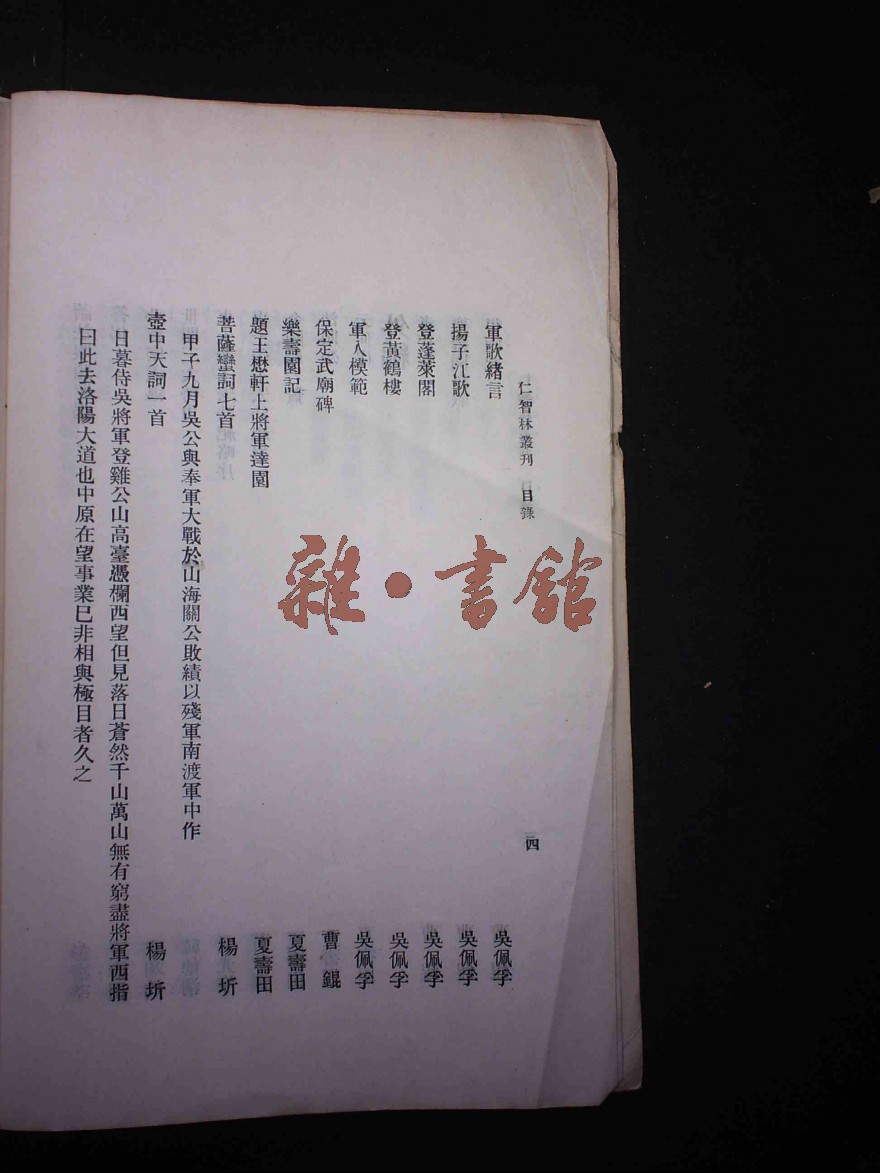 仁智林叢刊 目錄 四
軍歌緒言 吳佩孚
揚子江歌 吳佩孚
登蓬萊閣 吳佩孚
登黃鶴樓 吳佩孚
軍人模範 吳佩孚
保定武廟碑 曹錕
樂壽園記 夏壽田
題王懋軒上將軍達園 夏壽田
菩薩蠻詞七首 楊圻
甲子九月吳公與奉軍大戰於山海關公敗績以殘軍南渡軍中作
壺中天詞一首 楊圻
日暮侍吳將軍登雞公山高臺憑欄西望但見落日蒼然千山萬山無有窮盡將軍西指
曰此去洛陽大道也中原在望事業已非相與極目者久之
雜·書館